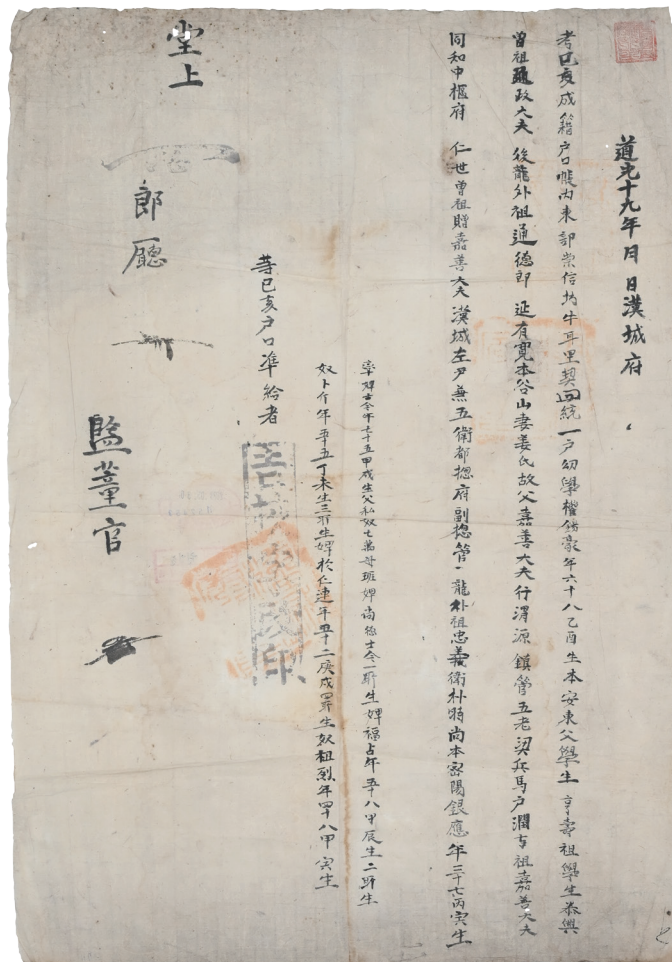 道光十九年 月 日漢城府
考己亥成籍户口帳內東部崇信坊牛耳里契四統一户幼學權 豪年六十八乙酉生本安東父學生 亨壽祖學生泰興
曾祖通政大夫 後龍外祖通德郎 延有寬本谷山妻姜氏故父嘉善大夫行渭源鎮管五老梁兵馬 潤 祖嘉善大夫
同知中樞府 仁世曾祖贈嘉善大夫漢城左尹兼五衛都摠府副摠管 龍外祖忠義衛朴時尚本密陽銀應年三十七丙寅生
率婢士今年七十五甲戌生父私奴七萬母班婢尚德士今一所生婢福占年五十八甲辰生二所生
奴卜介年五十五丁未生三所生婢於仁連年五十二庚戌四所生奴祖烈年四十八甲寅生
等己亥户口準給者
堂上
郎廳
監董官